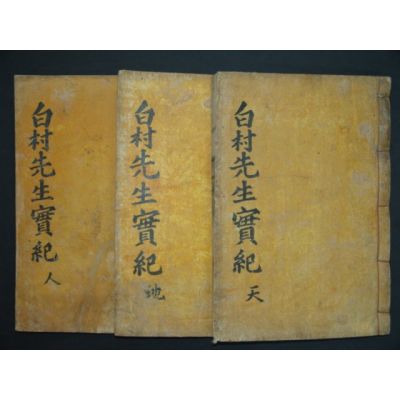 白村先生實紀
天
白村先生實紀
地
白村先生實紀
人